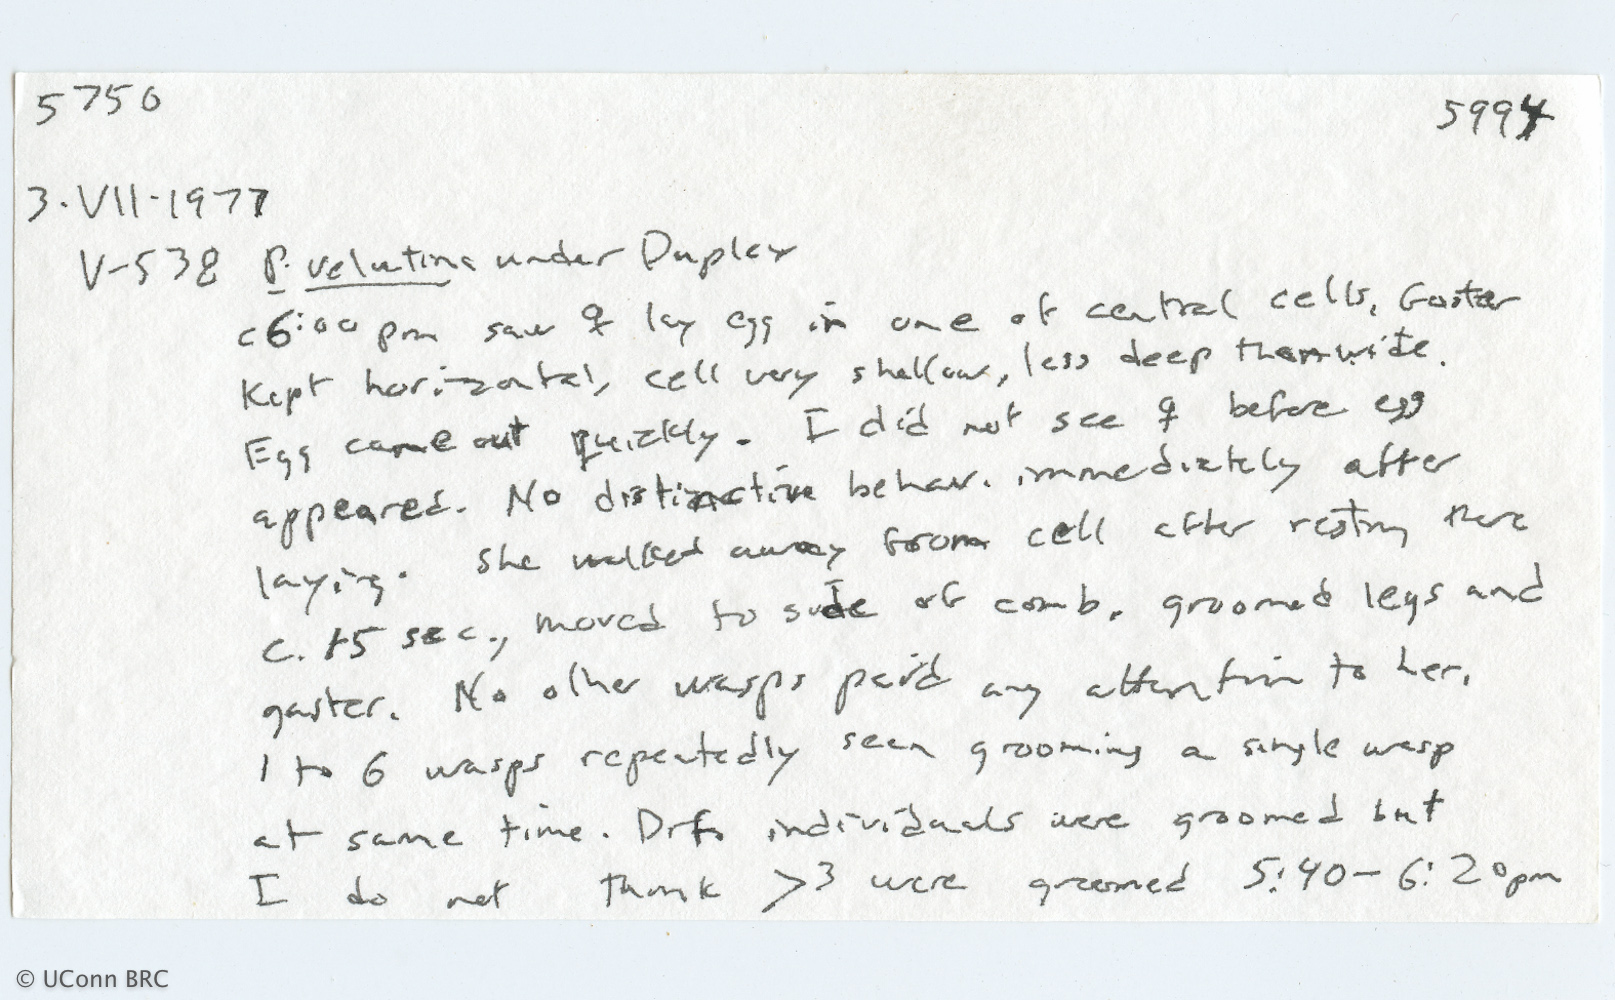 5750 5994
3.VII.1977
V-538 P. velutina under Duplex
c6:00 pm saw ♀ lay egg in one of central cells. Gaster
kept horizontal, cell very shallow, less deep than wide.
Egg came out quickly. I did not see ♀ before egg
appeared. No distinctive behav. immediately after
laying. She walked away from cell after resting there
c. 15 sec., moved to side of comb, groomed legs and
gaster. No other wasps paid any attention to her.
1 to 6 wasps repeatedly seen grooming a single wasp
at same time. Drf. individuals were groomed but
I do not think >3 were groomed 5:40-6:20pm
© UConn BRC